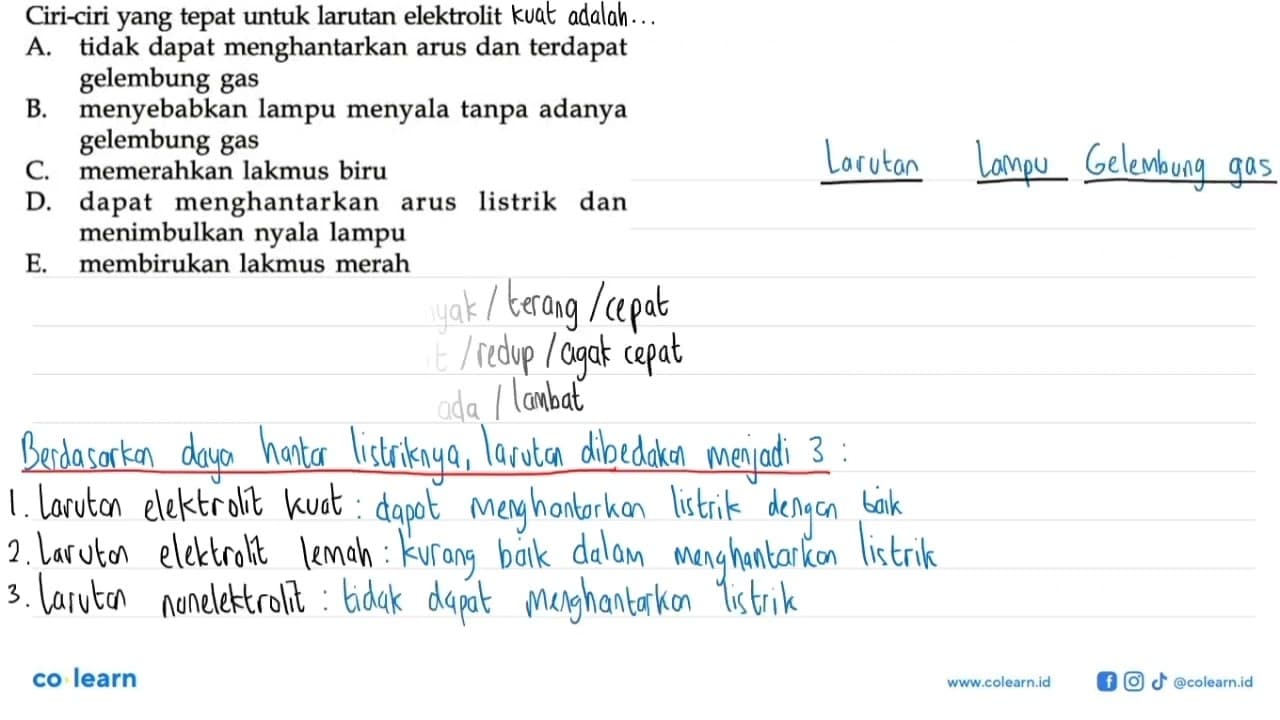 Ciri-ciri yang tepat untuk larutan elektrolit kuat adalah...
A. tidak dapat menghantarkan arus dan terdapat
gelembung gas
B. menyebabkan lampu menyala tanpa adanya
gelembung gas
C. memerahkan lakmus biru
D. dapat menghantarkan arus listrik dan
menimbulkan nyala lampu
E. membirukan lakmus merah
Larutan Lampu Gelembung gas
yak / terang / cepat
t / redup / agak cepat
ada / lambat
Berdasarkan daya hantar listriknya, larutan dibedakan menjadi 3 :
1. Larutan elektrolit kuat : dapat menghantarkan listrik dengan baik
2. Larutan elektrolit lemah : kurang baik dalam menghantarkan listrik
3. Larutan nonelektrolit : tidak dapat menghantarkan listrik
co learn
www.colearn.id
@colearn.id